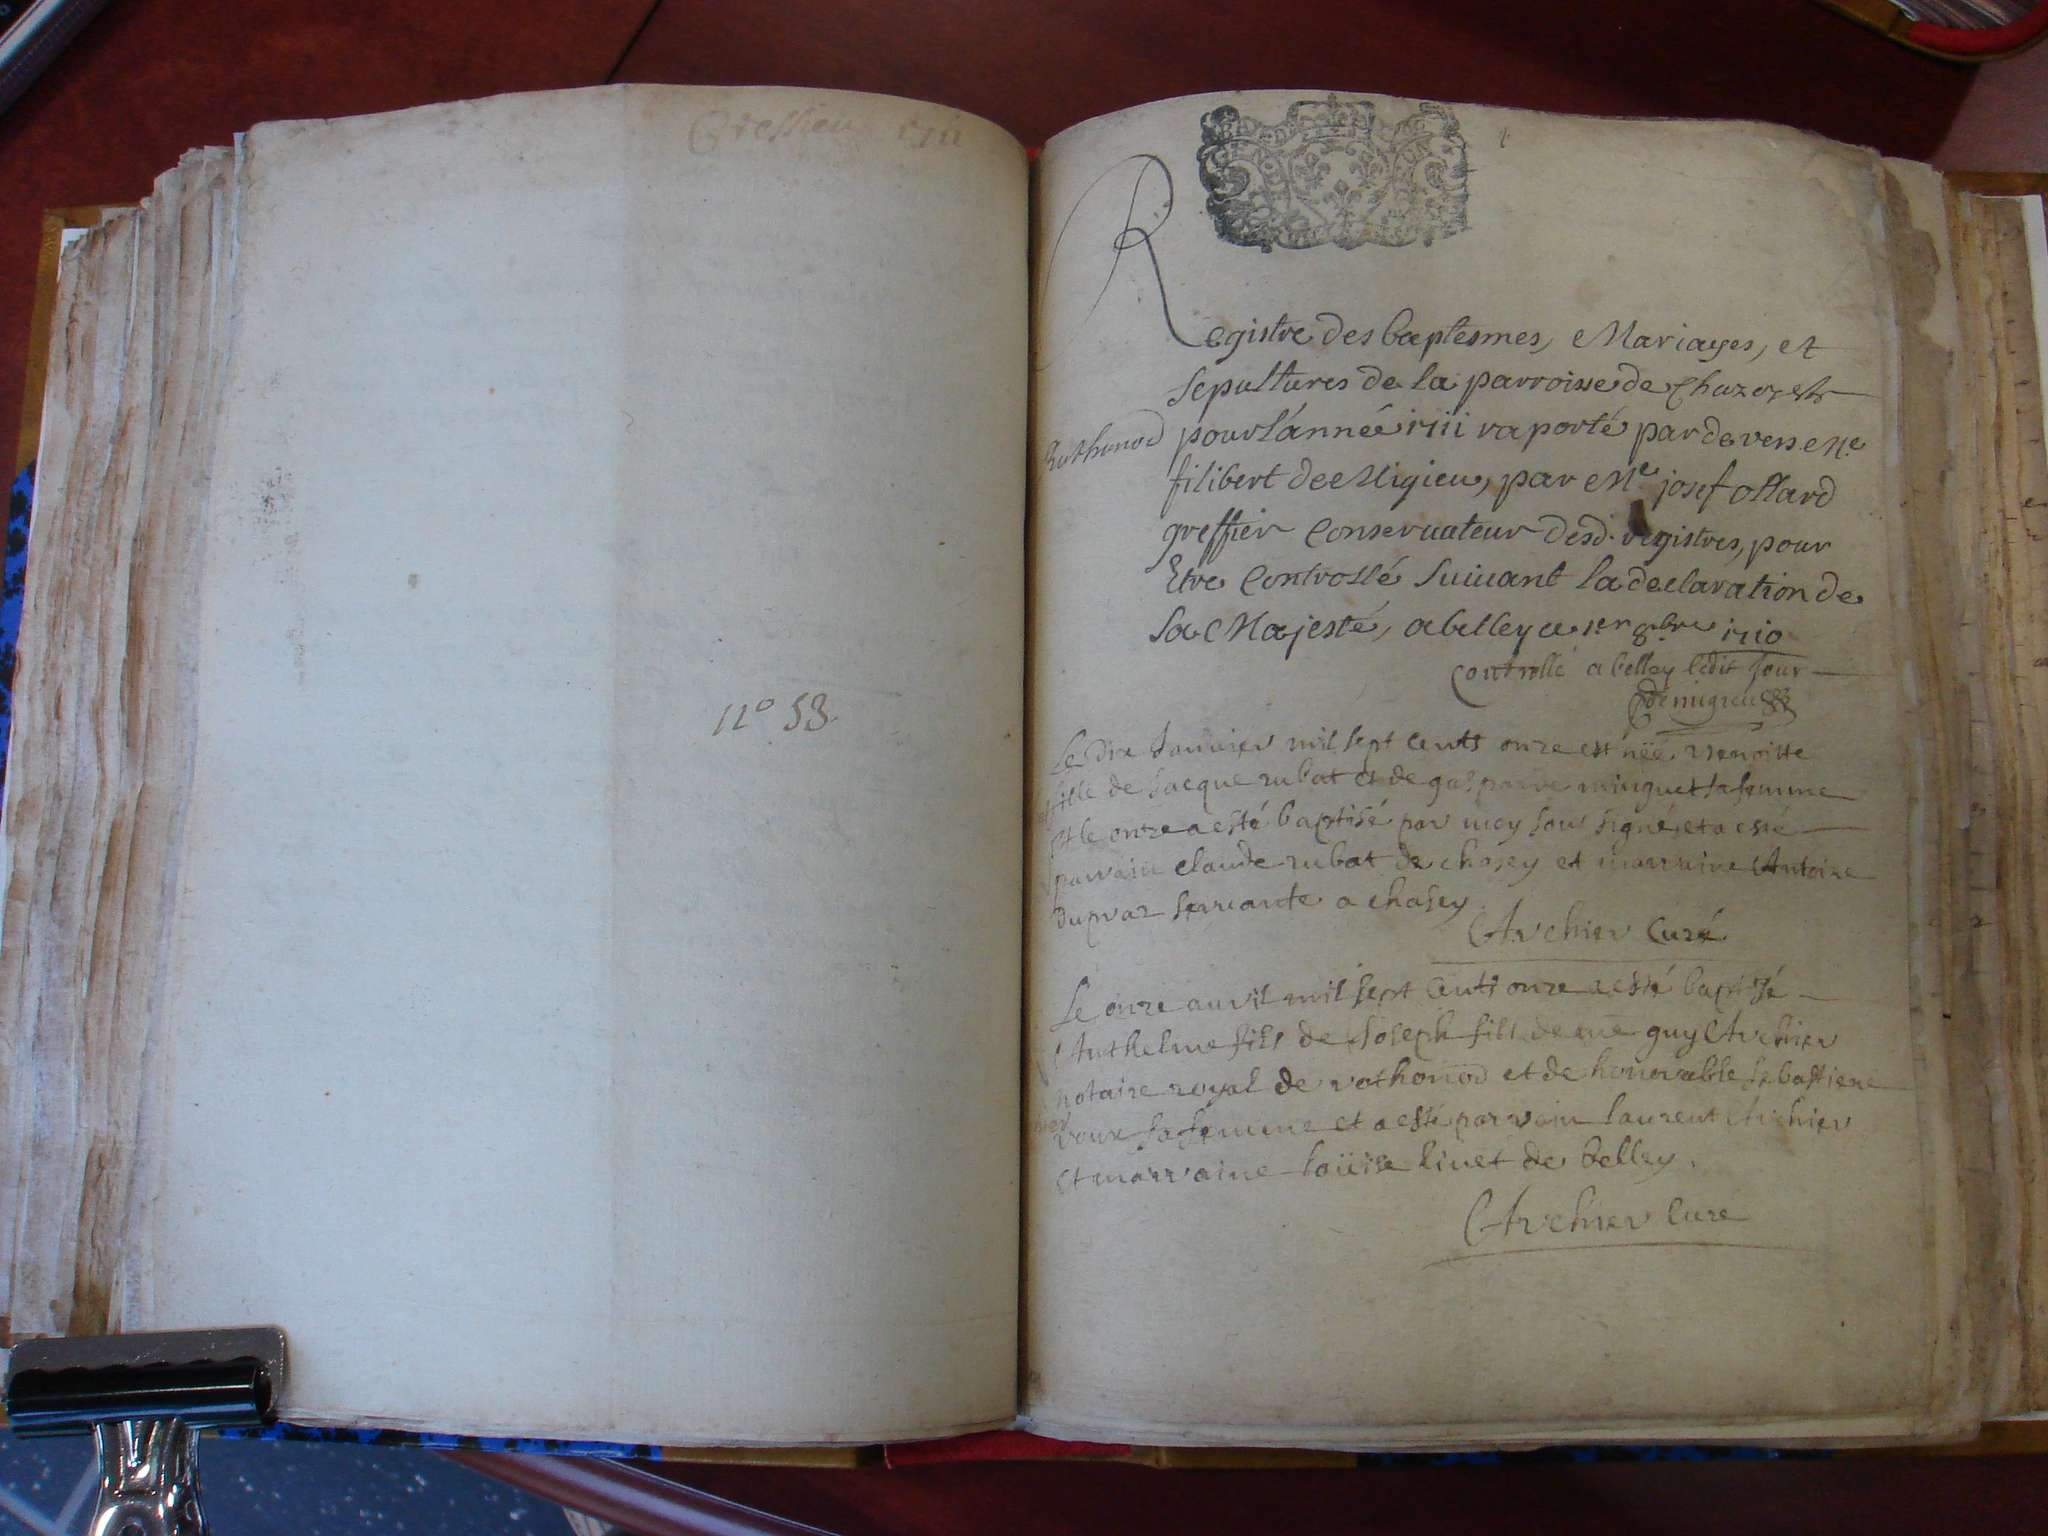 Cressieu 1711
n° 53
Registre des baptesmes, Mariages, et
sepultures de la parroisse de Chazey et
Rothonod
pour l'année 1711 raporté par devers Me
filibert de Migieu, par Me josef ollard
greffier Conservateur desd. registres, pour
Etre Controllé suivant la declaration de
Sa Majesté, a belley ce 1er 8bre 1710
Controllé a belley ledit jour
demigieu
Le dix Janvier mil sept cents onze est néé Benoitte
fille de Jacque rubat et de gasparde minguet sa femme
et le onze a esté baptisé par moy sousigné, et a esté
parrain claude rubat de chasey et marraine Antoine
servante a chasey
Archier Curé
Le onze auvil mil sept cents onze a esté baptisé
Anthelme fils de Joseph fils de me guy Archier
notaire royal de rothonod et de honorable sebastiene
sa femme et a esté parrain laurent Archier
et marraine loüise livet de belley.
Archier Curé